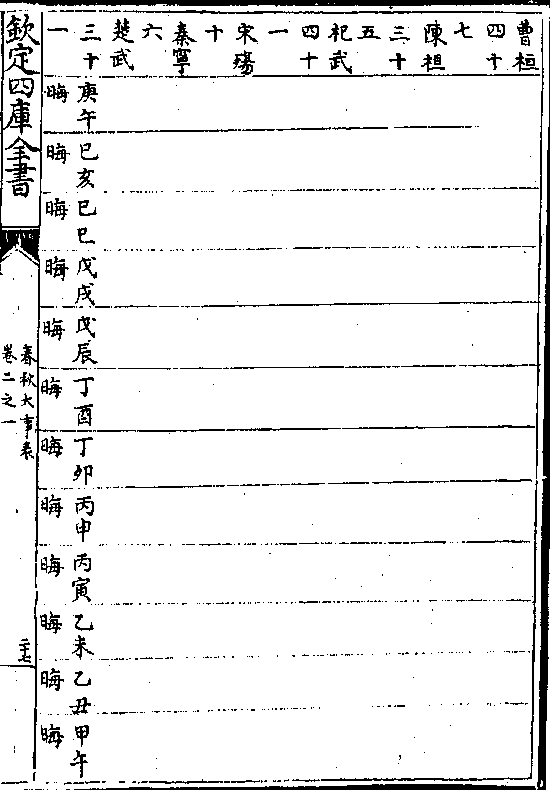 曹桓
四十
七
陳桓
三十
五
祀武
四十
一
宋殤
十
秦寧
六
楚武
三十
一
庚午
晦
巳亥
晦
巳巳
晦
戊戌
晦
戊辰
晦
丁酉
晦
丁卯
晦
丙申
晦
丙寅
晦
乙未
晦
乙丑
晦
甲午
晦
欽定四庫全書
春秋大事表
卷二之一
二十七